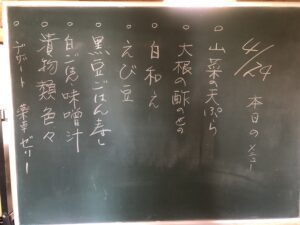 4/24 本日のメニュー
○ 山菜の天ぷら
○ 大根の酢のもの
○ 白和え
○ えび豆
○ 黒豆ごはん寿し
○ 白ご飯味噌汁
○ 漬物類色々
○ デザート 薬草ゼリー